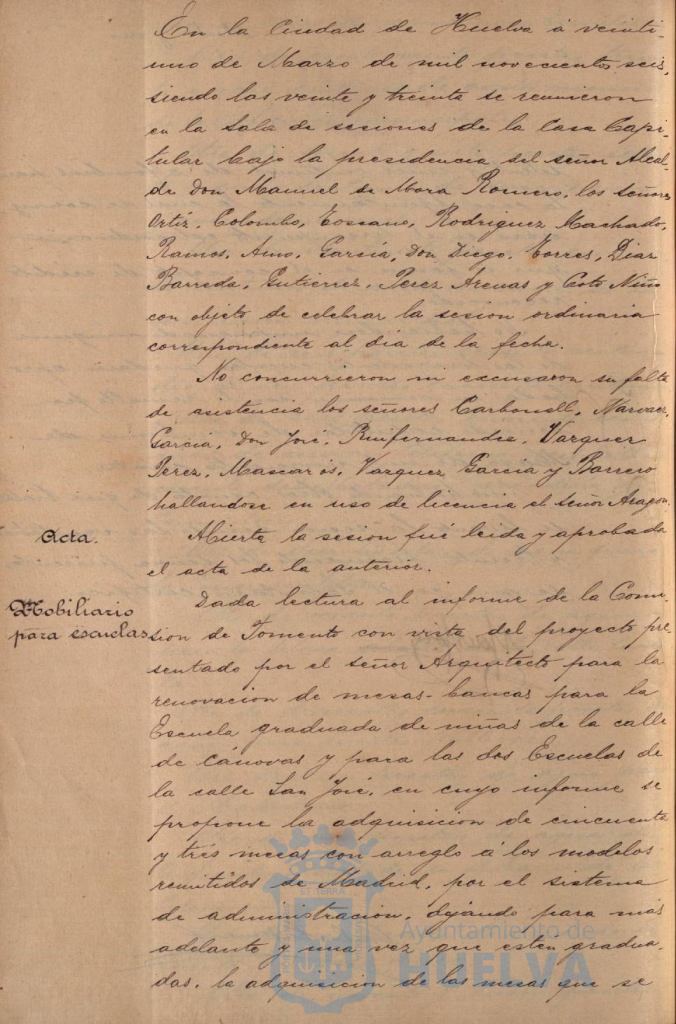 En la Ciudad de Huelva á veinti-
uno de Marzo de mil novecientos seis,
siendo las veinte y treinta se reunieron
en la Sala de sesiones de la Casa Capi-
tular bajo la presidencia del señor Alcal-
de Don Manuel de Mora Romero, los señores
Ortíz, Colombo, Toscano, Rodriguez Machado,
Ramos, Amo, García, Don Diego, Torres, Diaz
Barreda, Gutierrez, Perez Arenas y Coto Niño
con objeto de celebrar la sesion ordinaria
correspondiente al dia de la fecha.
No concurrieron ni excusaron su falta
de asistencia los señores Carbonell, Narvaez,
García, Don José, Ruifernandez, Vazquez
Perez, Mascarós, Vazquez García y Barrero
hallandose en uso de licencia el señor Aragon.
Acta.
Abierta la sesion fué leida y aprobada
el acta de la anterior.
Mobiliario
para escuelas
Dada lectura al informe de la Comi-
sion de Fomento con vista del proyecto pre-
sentado por el señor Arquitecto para la
renovacion de mesas-bancas para la
Escuela graduada de niñas de la calle
de Cánovas y para las dos Escuelas de
la calle San José, en cuyo informe se
propone la adquisicion de cincuenta
y tres mesas con arreglo á los modelos
remitidos de Madrid, por el sistema
de administracion, dejando para más
adelante y una vez que esten gradua-
das, la adquisicion de las mesas que se
Ayuntamiento de
HUELVA